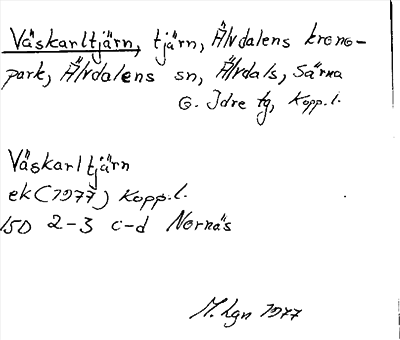 Väskarltjärn, tjärn, Älvdalens krono-
park, Älvdalens sn, Älvdals, Särna
o. Idre tg, Kopp.l.
Väskarltjärn
ek (1977) Kopp.l.
15D 2-3 c-d Nornäs
M. Lgn 1977